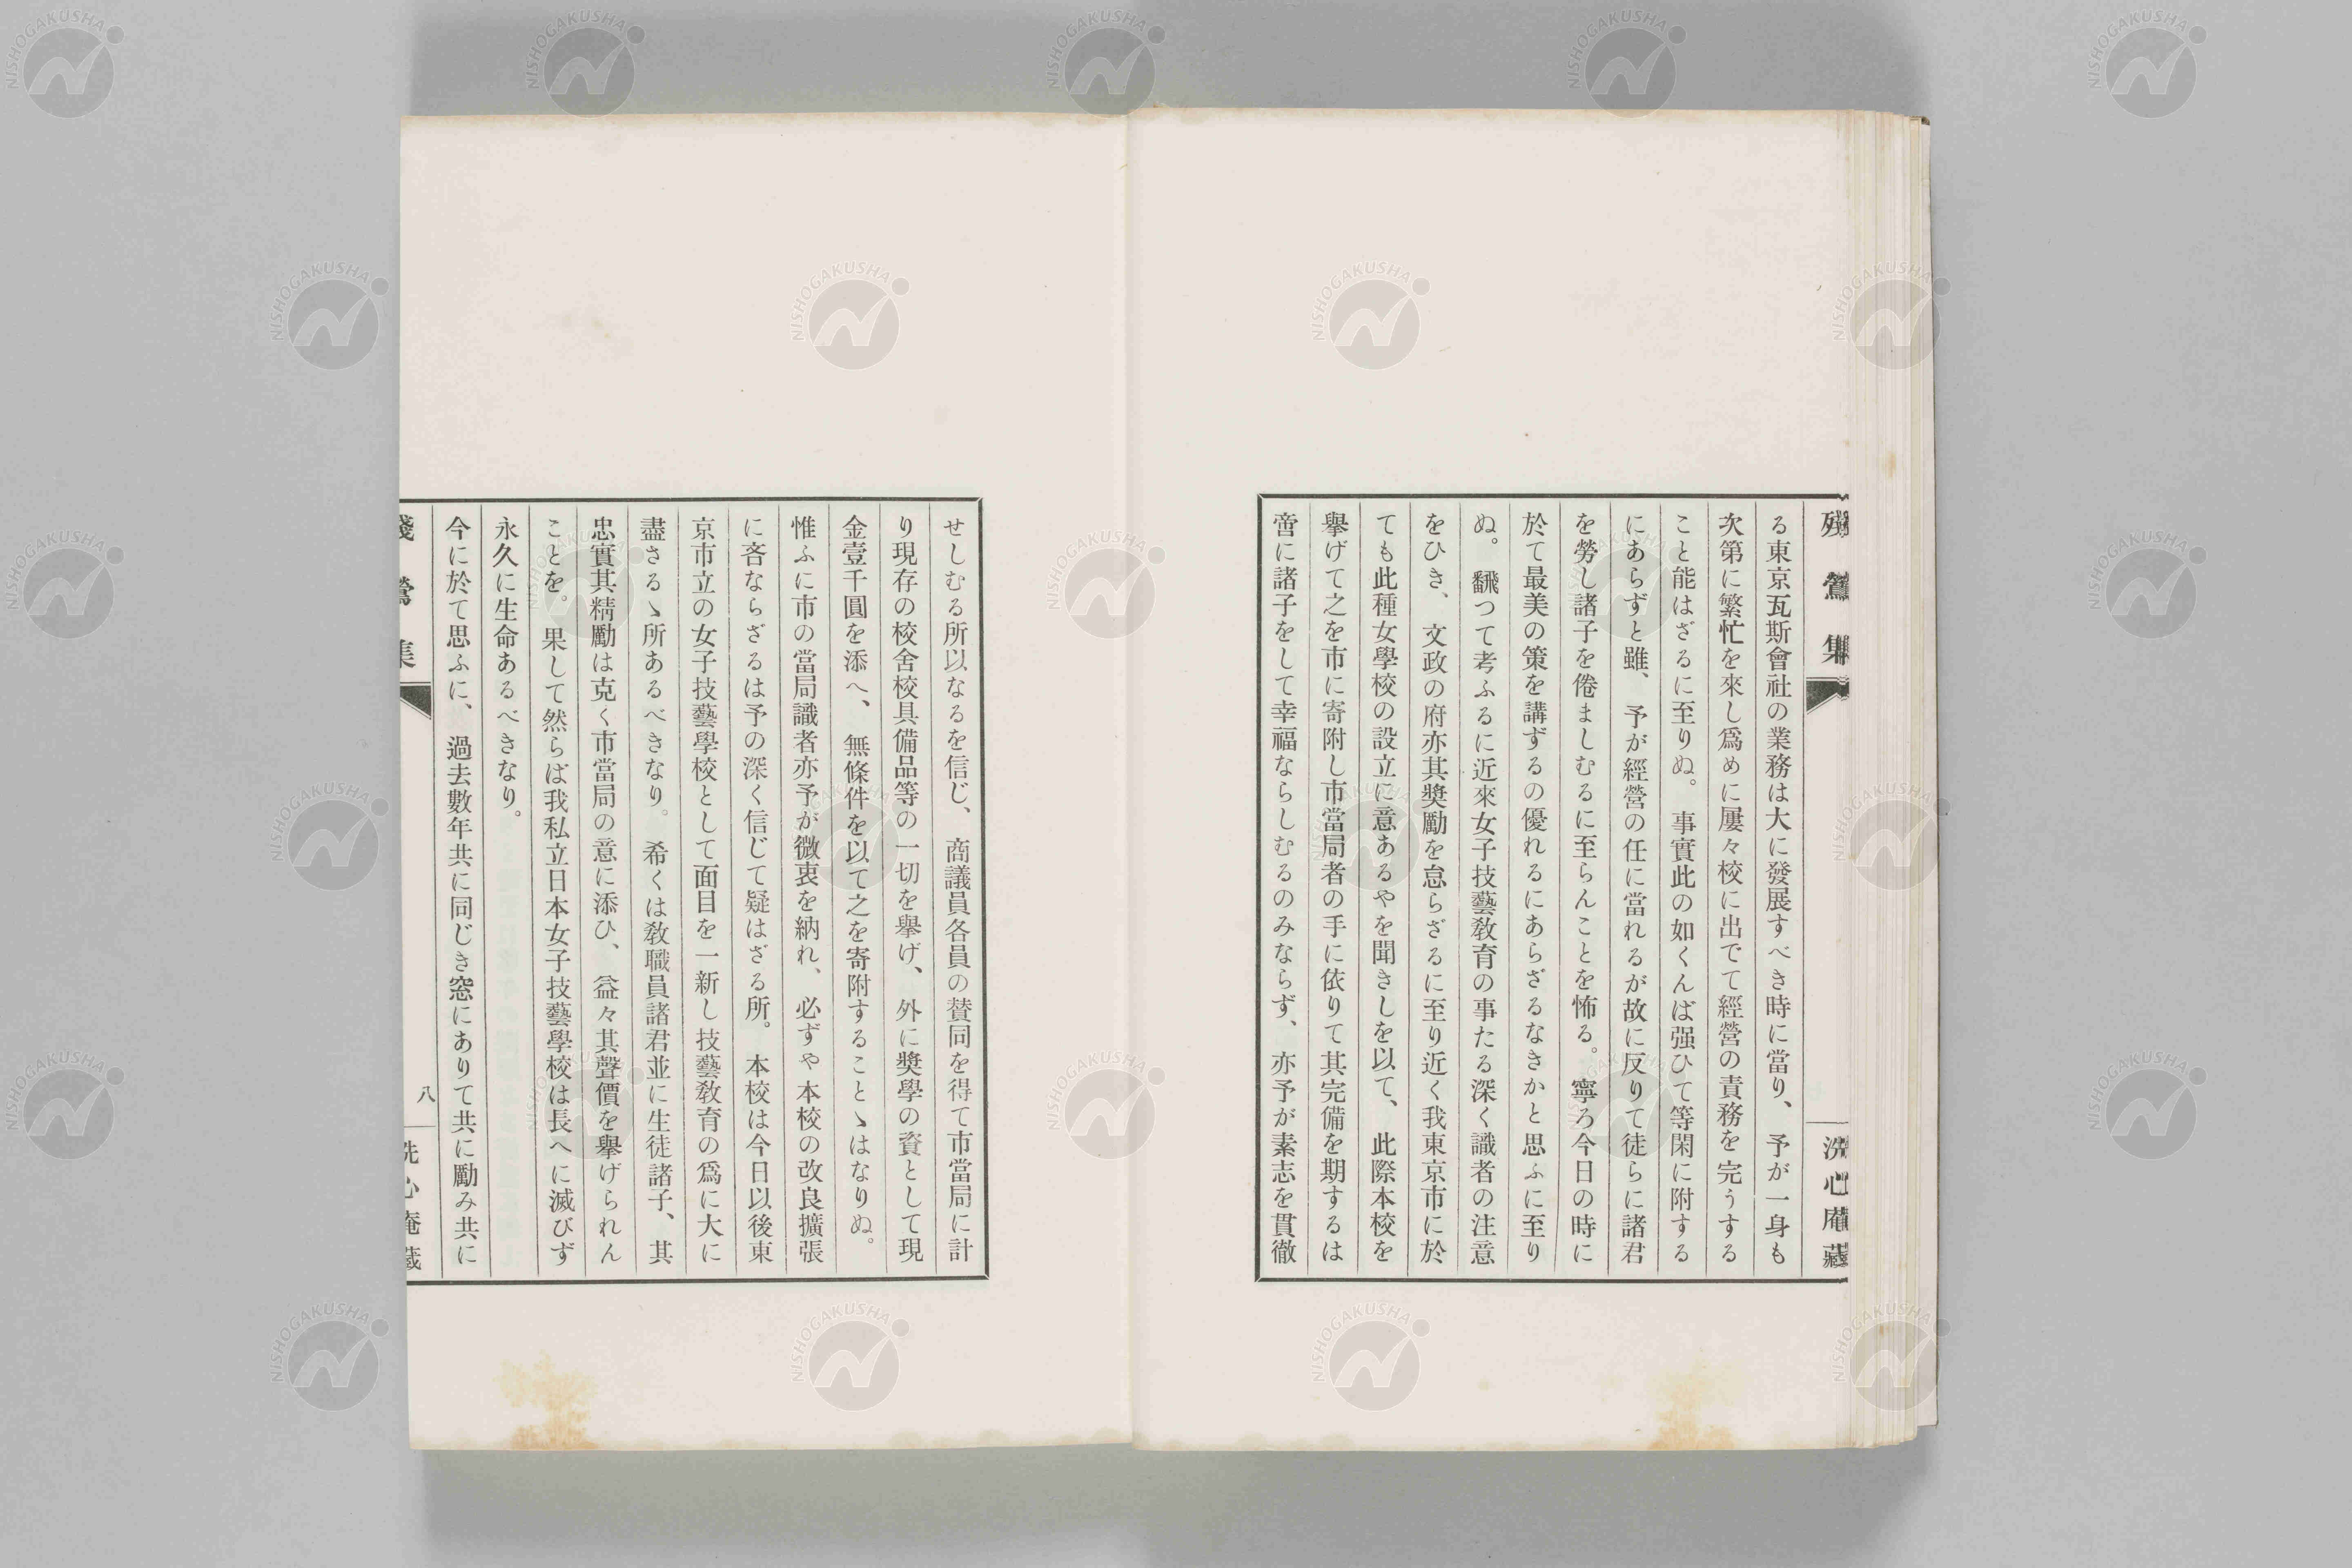 殘鶯集
洗心庵藏
る東京瓦斯會社の業務は大に發展すべき時に當り、予が一身も
次第に繁忙を來し爲めに屢々校に出でて經營の責務を完うする
こと能はざるに至りぬ。事實此の如くんば强ひて等閑に附する
にあらずと雖、予が經營の任に當れるが故に反りて徒らに諸君
を勞し諸子を倦ましむるに至らんことを怖る。寧ろ今日の時に
於て最美の策を講ずるの優れるにあらざるなきかと思ふに至り
ぬ。飜つて考ふるに近來女子技藝敎育の事たる深く識者の注意
をひき、文政の府亦其奬勵を怠らざるに至り近く我東京市に於
ても此種女學校の設立に意あるやを聞きしを以て、此際本校を
擧げて之を市に寄附し市當局者の手に依りて其完備を期するは
啻に諸子をして幸福ならしむるのみならず、亦予が素志を貫徹
せしむる所以なるを信じ、商議員各員の賛同を得て市當局に計
り現存の校舍校具備品等の一切を擧げ、外に奬學の資として現
金壹千圓を添へ、無條件を以て之を寄附することゝはなりぬ。
惟ふに市の當局識者亦予が微衷を納れ、必ずや本校の改良擴張
に吝ならざるは予の深く信じて疑はざる所。本校は今日以後東
京市立の女子技藝學校として面目を一新し技藝敎育の爲に大に
盡さるゝ所あるべきなり。希くは敎職員諸君並に生徒諸子、其
忠實其精勵は克く市當局の意に添ひ、益々其聲價を擧げられん
ことを。果して然らば我私立日本女子技藝學校は長へに滅びず
永久に生命あるべきなり。
今に於て思ふに、過去數年共に同じき窓にありて共に勵み共に
殘鶯集
八
洗心庵藏
NISHOGAKUSHA